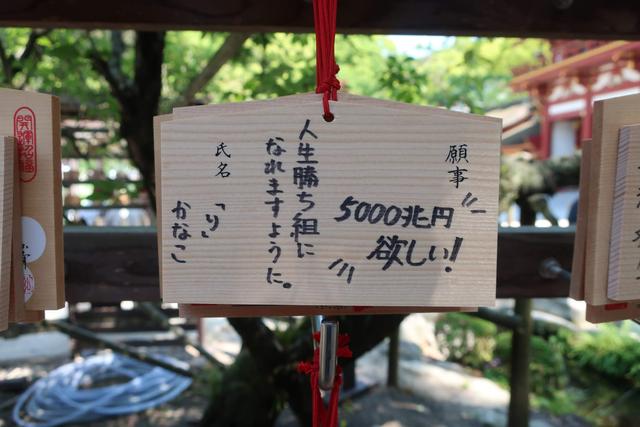 願事
5000兆円
欲しい!
人生勝ち組に
なれますように。
氏名
「り」
かなこ